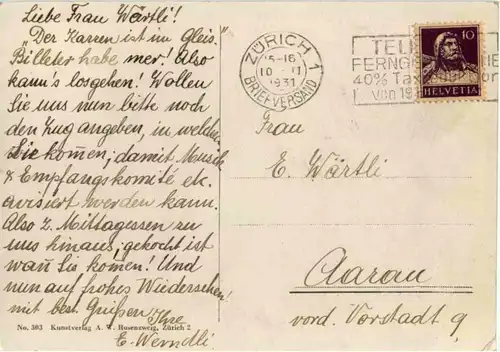 Liebe Frau Wärtli!
Der Karren ist im Gleis.
Billeter habe mer! Also
kann's losgehen! Wollen
Sie uns nun bitte noch
den Zug angeben, in welchem
Sie kom̅en; damit Musik
& Empfangskomité etc.
avisiert werden kann.
Also z. Mittagessen zu
uns hinaus, gekocht ist
wan̅ Sie kom̅en! Und
nun auf frohes Wiedersehen!
mit best. Grüßen Ihre
E. Werndli
No. 303 Kunstverlag A. W. Rosenzweig, Zürich 2
ZÜRICH 1
15-16
10 II
1931
BRIEFVERSAND
FERNG
40% Tax
von 19
10
HELVETIA
Frau
E. Wärtli
Aarau
vord. Vorstadt 9